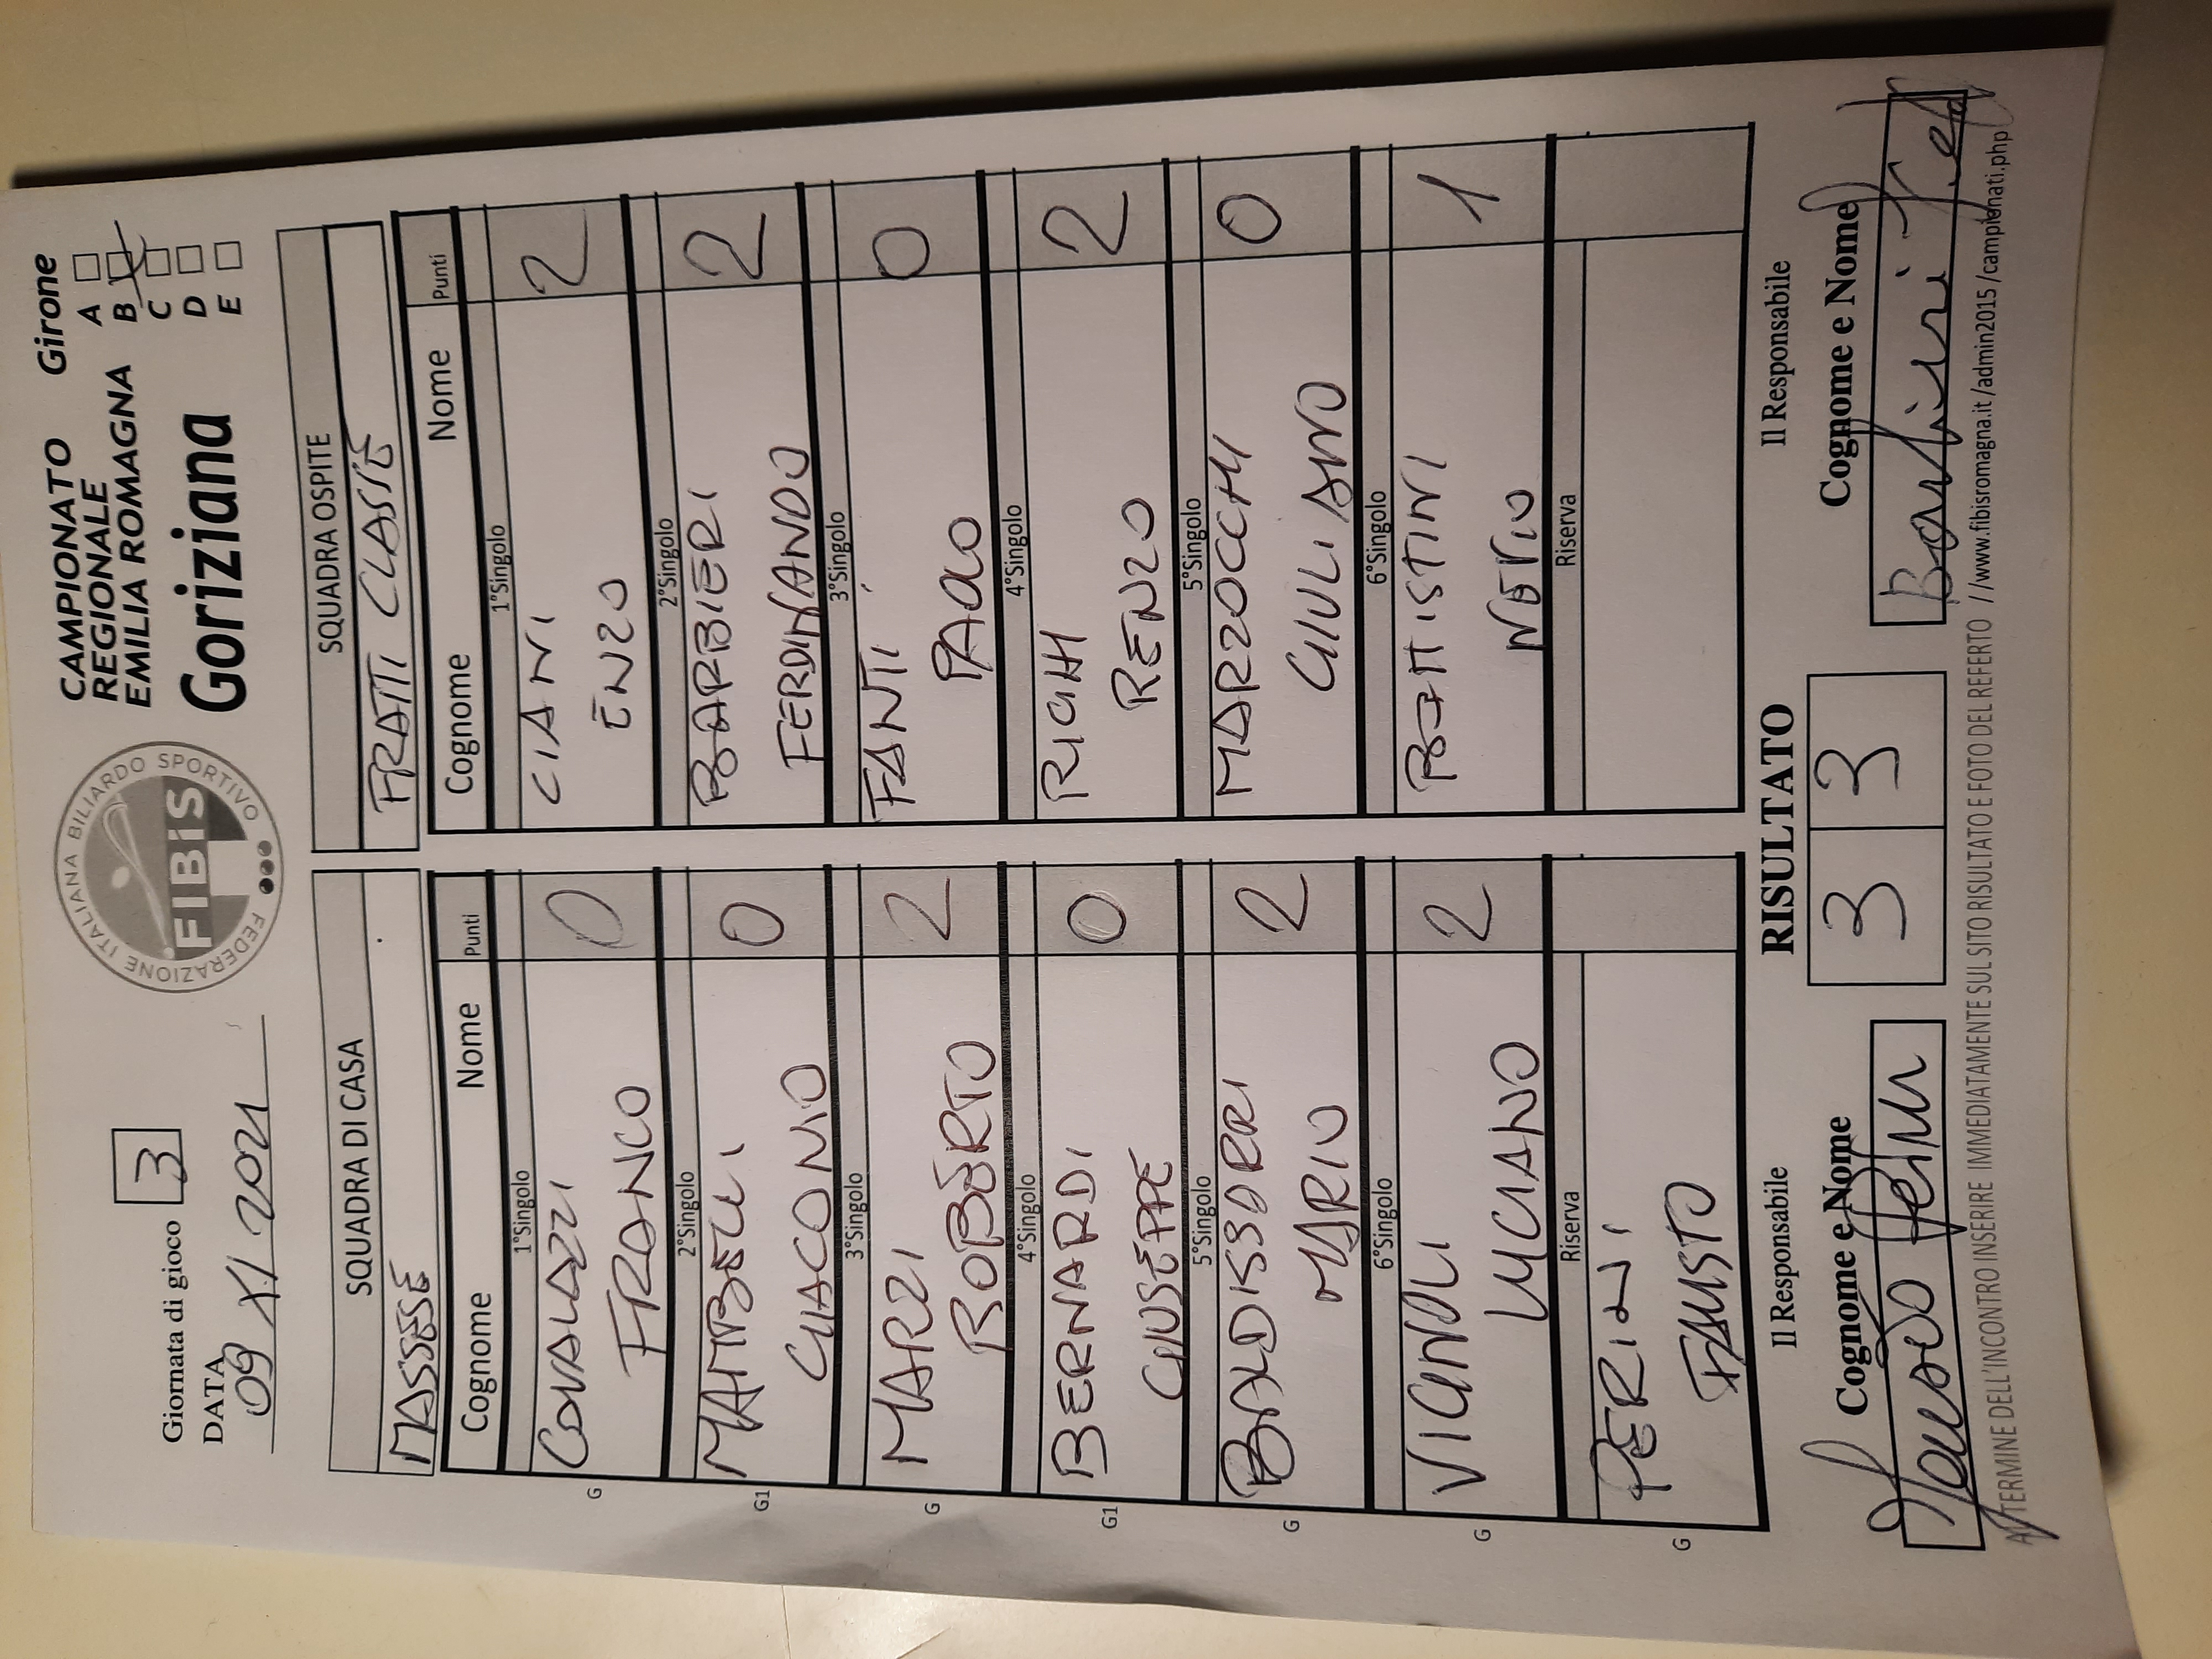 Giornata di gioco 3
DATA
09 XI 2021
FEDERAZIONE ITALIANA BILIARDO SPORTIVO
FIBiS
CAMPIONATO
REGIONALE
EMILIA ROMAGNA
Goriziana
Girone
A
B
C
D
E
SQUADRA DI CASA
MASSESE
Cognome Nome Punti
1°Singolo
G
COVALAZZI
FRANCO 0
2°Singolo
G1
GIACOMO 0
3°Singolo
G
MARZI
ROBERTO 2
4°Singolo
G1
BERNARDI
GIUSEPPE 0
5°Singolo
G
BALDISSARRI
MARIO 2
6°Singolo
G
VIGNOLI
LUCIANO 2
Riserva
G
PERINI
FAUSTO
SQUADRA OSPITE
FRATTI CLASSIS
Cognome Nome Punti
1°Singolo
CIANI
ENZO 2
2°Singolo
BARBIERI
FERDINANDO 2
3°Singolo
FANTI
PAOLO 0
4°Singolo
RIGHI
RENZO 2
5°Singolo
MARZOCCHI
GIULIANO 0
6°Singolo
BATTISTINI
NEVIO 1
Riserva
Il Responsabile
Cognome e Nome
RISULTATO
3 3
Il Responsabile
Cognome e Nome
Barbieri
AL TERMINE DELL'INCONTRO INSERIRE IMMEDIATAMENTE SUL SITO RISULTATO E FOTO DEL REFERTO //www.fibisromagna.it/admin2015/campionati.php